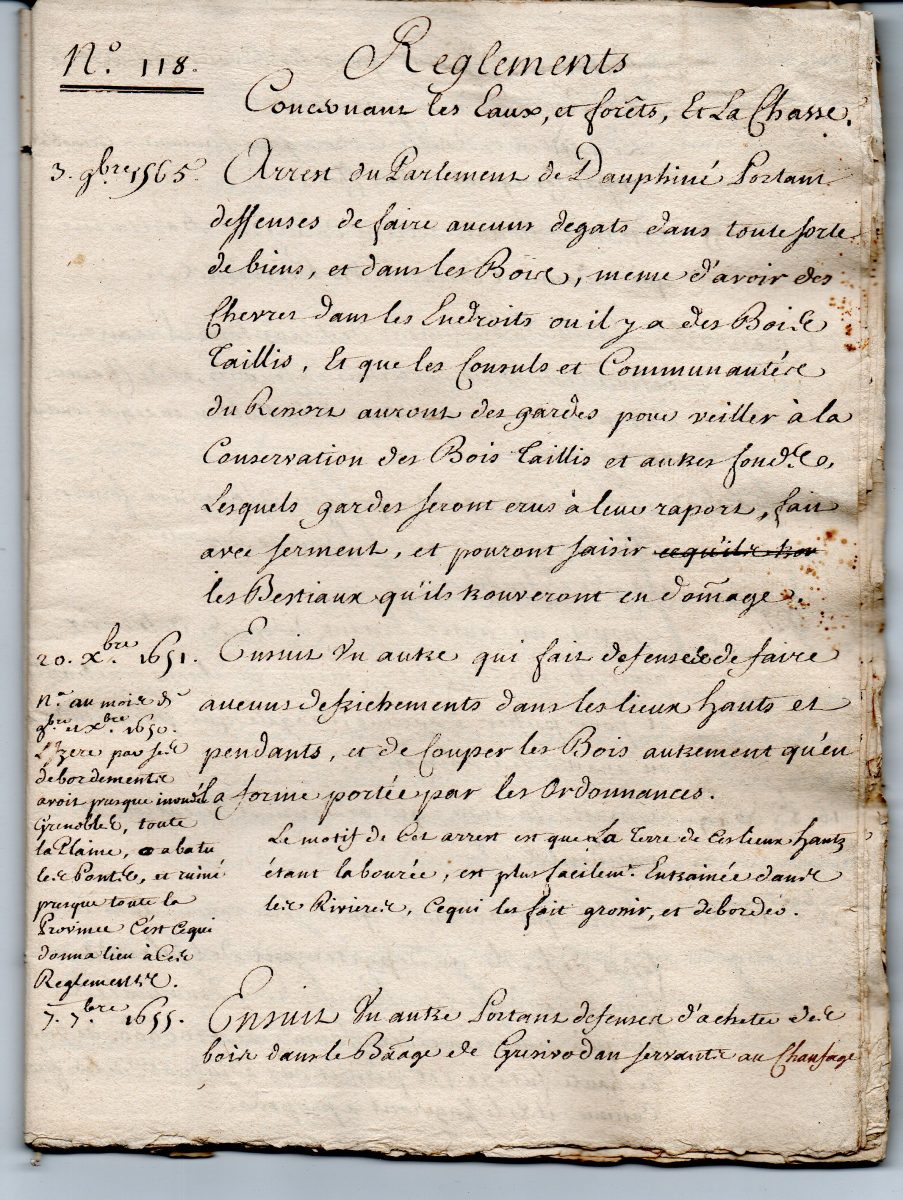 N.° 118.
Reglements
Concernant les Eaux, et forêts, Et La Chasse.
3. 9bre 1565.
Arrest du Parlement de Dauphiné Portant
deffenses de faire aucuns degats dans toute sorte
de biens, et dans les Bois, meme d'avoir des
Chevres dans les Endroits ou il y a des Bois
Taillis, Et que les Consuls et Communautés
du Ressort auront des gardes pour veiller à la
Conservation des Bois Taillis et autres fonds,
Lesquels gardes seront crus à leur raport, fait
avec serment, et pouront saisir
les Bestiaux qu'ils trouveront en domage.
20. Xbre 1651.
Ensuit Un autre qui fait defenses de faire
aucuns defrichements dans les lieux hauts et
pendants, et de Couper les Bois autrement qu'en
la forme portée par les Ordonnances.
Le motif de Cet arrest est que La Terre de ces lieux hauts
étant labourée, est plus facilemt. Entrainée dans
les Rivieres, Cequi les fait grossir, et deborder.
Na. au mois de
9bre et Xbre 1650.
L'Izere par ses
debordements
avoit presque inondé
Grenoble, toute
la Plaine, abatu
les Ponts, et ruiné
presque toute la
Province C'est Cequi
donna lieu à Ces
Reglements.
7. 7bre 1655.
Ensuit Un autre Portant defenses d'acheter des
bois dans le Baage de Gresivodan servants au Chaufage